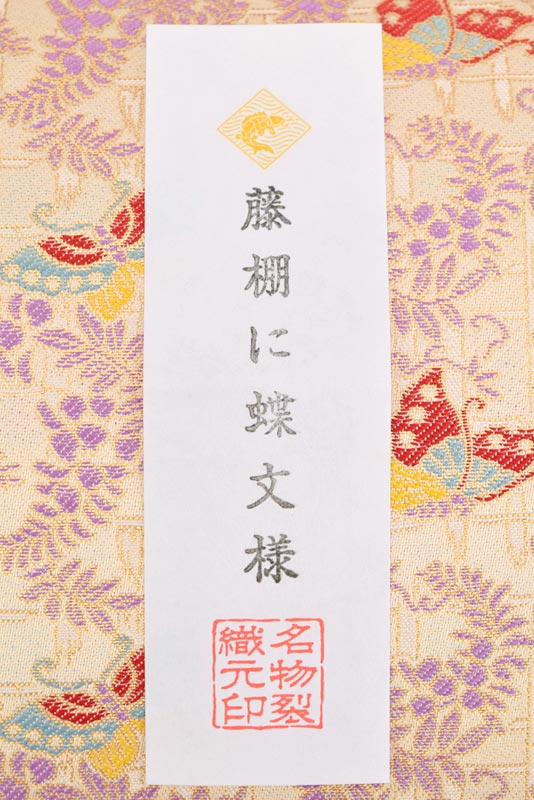 藤棚に蝶文様
名物裂
織元印